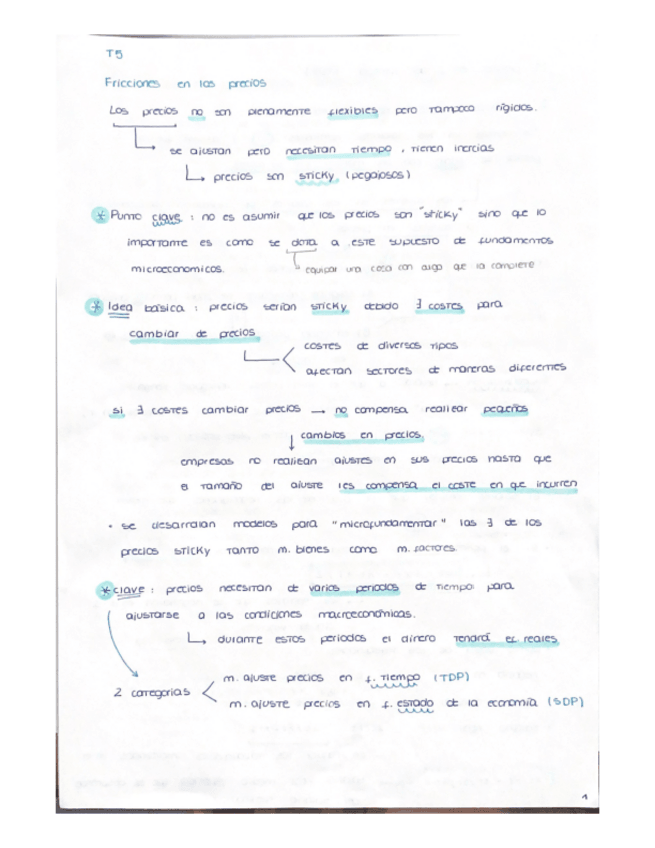 T5
Fricciones en los precios
Los precios no son plenamente flexibles pero tampoco rígidos.
se ajustan pero necesitan tiempo, tienen inercias
precios son sticky (pegajosos)
* Punto clave : no es asumir que los precios son "sticky" sino que lo
importante es como se dota a este supuesto de fundamentos
microeconomicos.
equipar una cosa con algo que la complete
* Idea básica : precios serían sticky debido ∃ costes para
cambiar de precios
costes de diversos tipos
afectan sectores de maneras diferentes
si ∃ costes cambiar precios → no compensa realizar pequeños
cambios en precios,
empresas no realizan ajustes en sus precios hasta que
el tamaño del ajuste les compensa el coste en que incurren
· se desarrollan modelos para "microfundamentar" las ∃ de los
precios sticky tanto m. bienes como m. factores.
* clave : precios necesitan de varios periodos de tiempo para
ajustarse a las condiciones macroeconómicas.
durante estos periodos el dinero tendrá ef. reales
m. ajuste precios en f. tiempo (TDP)
2 categorias
m. ajuste precios en f. estado de la economía (SDP)
1